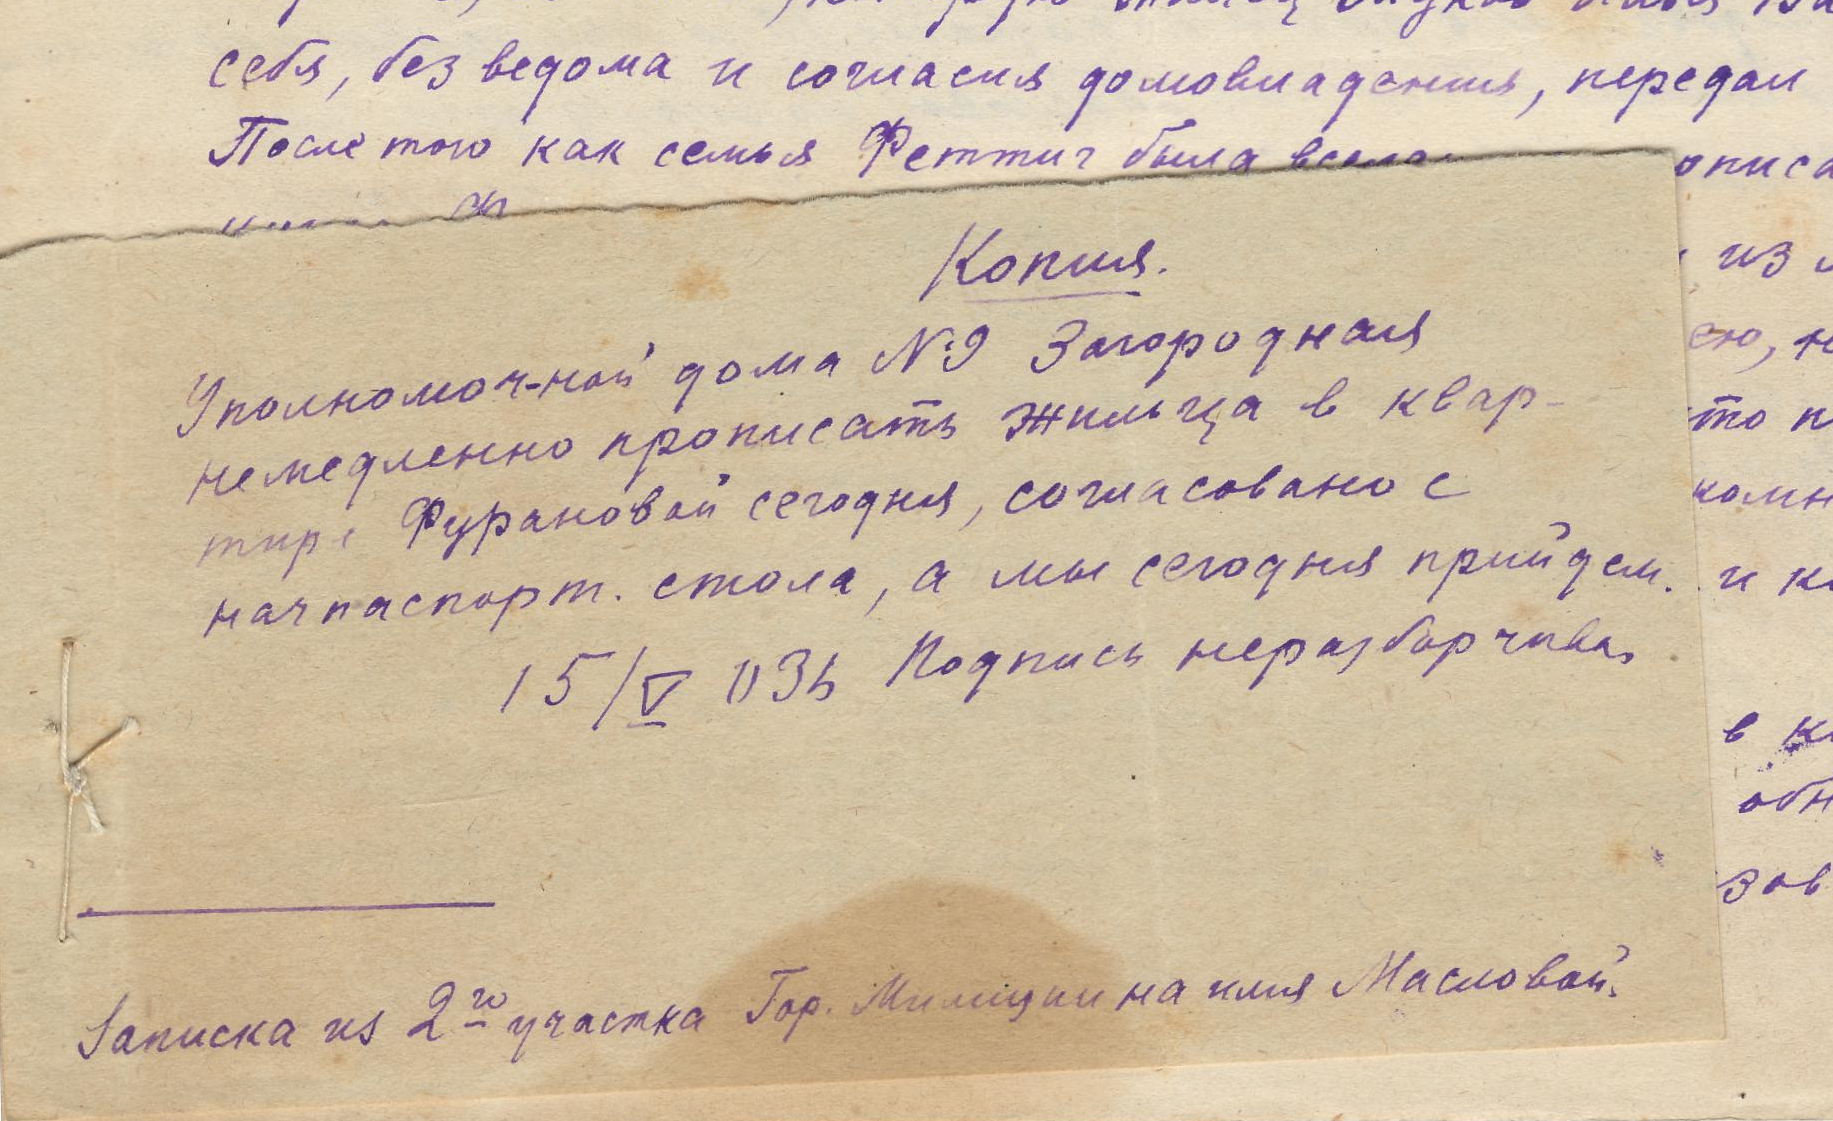 себя, без ведома и согласия домовладения, передал
После того как семья Феттиг была
Копия.
Уполномоч-ной дома №9 Загородная
немедленно прописать жильца в квар-
тире Фурановой сегодня, согласовано с
начпаспорт. стола, а мы сегодня прийдем.
15/V 036 Подпись неразборчива.
из
ею,
и
в
Записка из 2го участка Гор. Милиции на имя Масловой.